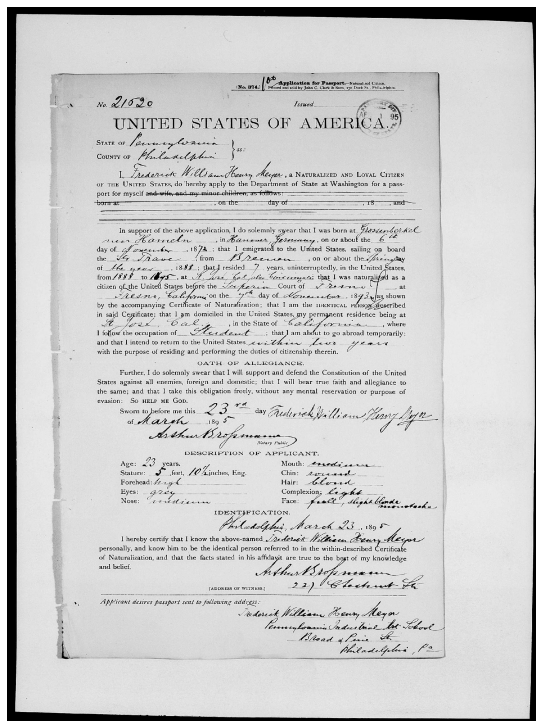 (No. 374.) Application for Passport.—Naturalized Citizen.
Printed and sold by John C. Clark & Sons, 230 Dock St., Philadelphia.
No. 21520 Issued
95
UNITED STATES OF AMERICA.
STATE OF Pennsylvania
COUNTY OF Philadelphia } ss:
I, Frederick William Henry Meyer, a NATURALIZED AND LOYAL CITIZEN
OF THE UNITED STATES, do hereby apply to the Department of State at Washington for a pass-
port for myself and wife, and my minor children, as follows:
born at , on the day of , 18 , and
In support of the above application, I do solemnly swear that I was born at
near Hameln, in Hanover, Germany, on or about the 6th
day of November 1872; that I emigrated to the United States, sailing on board
the Str Trave, from Bremen, on or about the Spring
of the year, 1888; that I resided 7 years, uninterruptedly, in the United States,
from 1888 to 1895, at ; that I was naturalized as a
citizen of the United States before the Superior Court of Fresno at
Fresno, California on the 7th day of November 189, as shown
by the accompanying Certificate of Naturalization; that I am the IDENTICAL PERSON described
in said Certificate; that I am domiciled in the United States, my permanent residence being at
San Jose Cal, in the State of California, where
I follow the occupation of Student; that I am about to go abroad temporarily;
and that I intend to return to the United States within two years
with the purpose of residing and performing the duties of citizenship therein.
OATH OF ALLEGIANCE.
Further, I do solemnly swear that I will support and defend the Constitution of the United
States against all enemies, foreign and domestic; that I will bear true faith and allegiance to
the same; and that I take this obligation freely, without any mental reservation or purpose of
evasion: SO HELP ME GOD.
Sworn to before me this 23rd day Frederick William Henry Meyer
of March 1895
Arthur Brossmann
Notary Public
DESCRIPTION OF APPLICANT.
Age: 23 years. Mouth: medium
Stature: 5 feet, 10½ inches, Eng. Chin: round
Forehead: high Hair: blond
Eyes: grey Complexion: light
Nose: medium Face: full, slight blonde
moustache
IDENTIFICATION.
Philadelphia, March 23, 1895
I hereby certify that I know the above-named Frederick William Henry Meyer
personally, and know him to be the identical person referred to in the within-described Certificate
of Naturalization, and that the facts stated in his affidavit are true to the best of my knowledge
and belief.
Arthur Brossmann
[ADDRESS OF WITNESS.] 227 Chestnut St
Applicant desires passport sent to following address:
Frederick William Henry Meyer
Pennsylvania Industrial Art School
Broad & Pine St.
Philadelphia, Pa